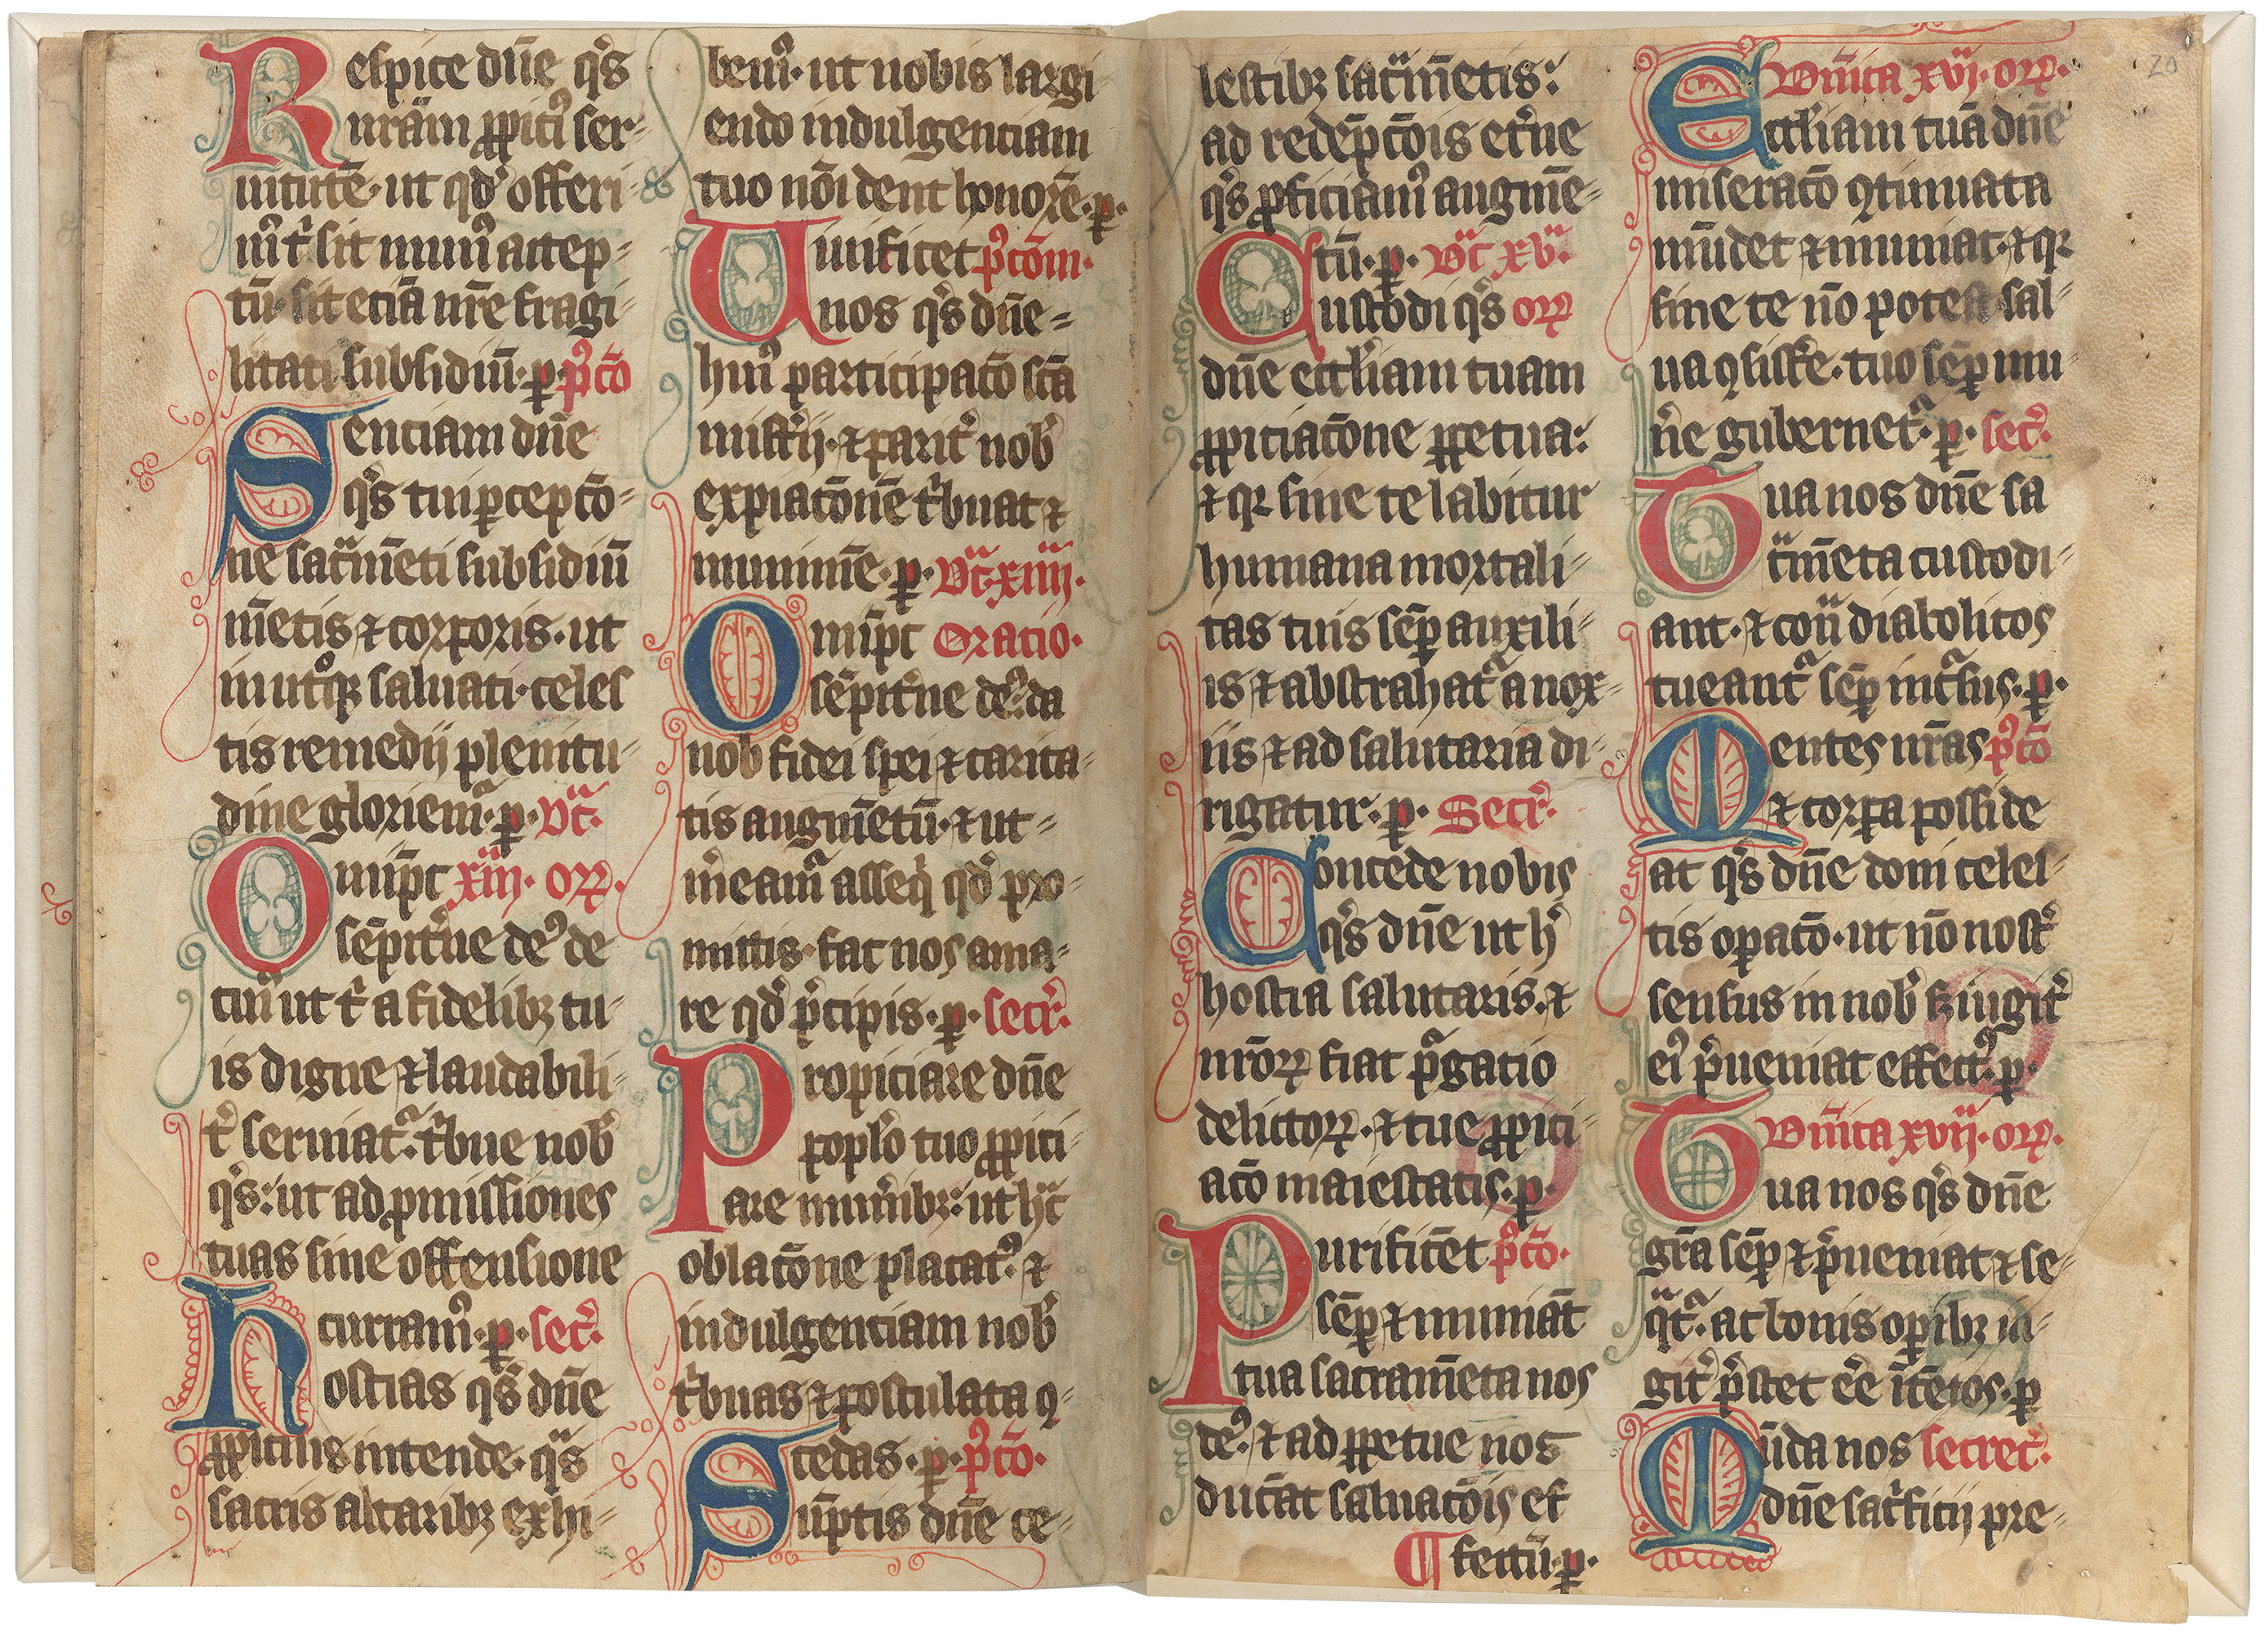 Respice dn̄e qs̄
nr̄am ꝓpiciꝰ ser-
uitutē· ut qd̓ offeri-
mꝰ t̓ sit munꝰ accep-
tū· sit eciā nr̄e fragi-
litati subsidiū· ꝑ· p̓ꝰcō
Senciam dn̄e
qs̄ tui ꝑcepcō-
ne sac̓mēti subsidiū
mētis ⁊ corꝑoris· ut
in utͦqꝫ saluati· celes
tis remedij plenitu-
dine gloriemᷓ· ꝑ· Dc̄ᷓ·
Omīpt̄ xiij· orꝝ·
sēpit̓ne deꝰ de
cuiꝰ ut t̓ a fidelibꝫ tu-
is digne ⁊ laudabili-
t̓ seruiatᷓ· t̓bue nob̓
qs̄: ut ad ꝓmissiones
tuas sine offensione
curramꝰ· ꝑ· secᷓ·
Hostias qs̄ dn̄e
ꝓpicius intende· qᷓs
sacris altaribꝫ exhi-
bemꝰ· ut nobis largi-
endo indulgenciam
tuo nōi dent honorē· ꝑ·
Uiuificet pꝰcōm·
nos qs̄ dn̄e-
huiꝰ participacō scā
mist̓ij· ⁊ parit̓ nob̓
expiacōnē t̓buat ⁊
munimē· ꝑ· Dc̄ᷓ xiiij·
Omīpt̄ Oratio·
sēpit̓ne deꝰ· da
nob̓ fidei spei ⁊ carita-
tis augmētū· ⁊ ut-
m̓eamᷓ asseq̓ qd̓ pro-
mittis· fac nos ama-
re qd̓ p̓cipis· ꝑ· secr̓·
Propiciare dn̄e
popl̓o tuo ꝓpici-
are munīribꝫ: ut hᷓc
oblacōne placatꝰ· ⁊
indulgenciam nob̓
t̓buas ⁊ postulata ꝯ-
cedas· ꝑ· pꝰcō·
Sūptis dn̄e ce-
lestibꝫ sac̓mētis:
ad redēpcōis et̓ne
qs̄ ꝓficiamꝰ augmē-
tū· ꝑ· Dc̄ᷓ xv·
Custodi qs̄ orꝝ
dn̄e eccl̓iam tuam
ꝓpiciacōne ꝑpetua:
⁊ qꝛ sine te labitur
humana mortali-
tas tuis sēꝑ auxili-
is ⁊ abstrahatᷓ a nox-
iis ⁊ ad salutaria di-
rigatur· ꝑ· Secr̓·
Concede nobis
qs̄ dn̄e ut h̓
hostia salutaris· ⁊
nr̄orꝝ fiat pᷓgatio
delictorꝝ· ⁊ tue ꝓpici-
acō maiestatis· ꝑ·
Purificēt pꝰcō·
sēꝑ ⁊ muniāt
tua sacramēta nos
deꝰ· ⁊ ad ꝑpetue nos
ducāt saluacōis ef
¶ fectū· ꝑ·
Dn̄ica xvj· orꝝ·
Eccl̓iam tuā dn̄e
miseracō ꝯtinuata
mūdet ⁊ muniat· ⁊ qꝛ
sine te nō potest sal-
ua ꝯsist̓e· tuo sēꝑ mu-
n̓e gubernetᷓ· ꝑ· secᷓ·
Tua nos dn̄e sa
c̓mēta custodi-
ant· ⁊ cont̓ diabolicos
tueantᷓ sēꝑ incᷓsus· ꝑ·
Mentes nr̄as pꝰcō
⁊ corꝑa posside
at qs̄ dn̄e doni celes-
tis oꝑacō· ut nō nost̓
sensus in nob̓ sꝫ iugit̓
eiꝰ p̓ueniat effectꝰ· ꝑ·
Dn̄ica xvij· orꝝ·
Tua nos qs̄ dn̄e
grā sēꝑ ⁊ p̓ueniat ⁊ se-
qᷓtᷓ· ac bonis oꝑibꝫ iu-
git̓ p̓stet ēē ītētos· ꝑ
Mūda nos secret̓·
dn̄e sac̓ficij pre-
20